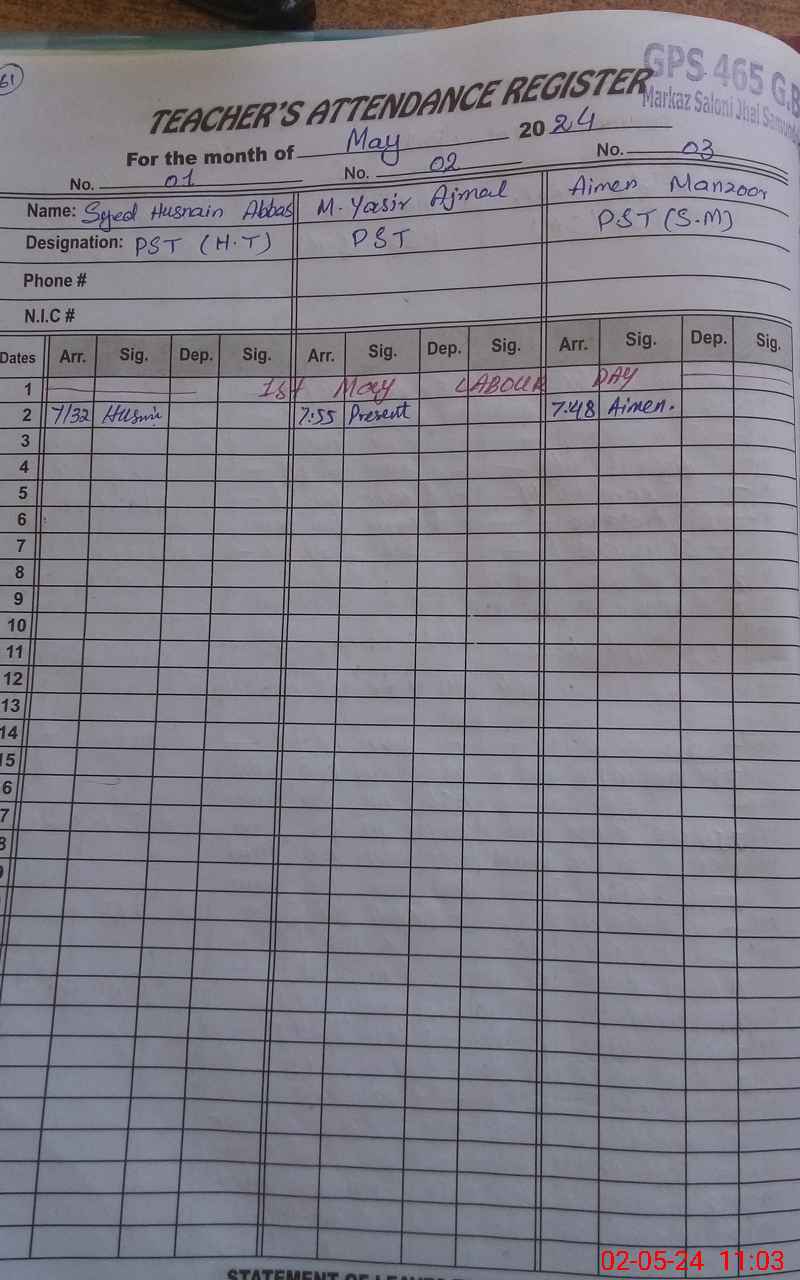 61
GPS 465 G.B
Markaz Saloni Jhal
TEACHER'S ATTENDANCE REGISTER
For the month of May 2024
No. 01 No. 02 No. 03
Name: Syed Husnain Abbas M. Yasir Ajmal Aimen Manzoor
Designation: PST (H.T) PST PST (S.M)
Phone #
N.I.C #
Dates Arr. Sig. Dep. Sig. Arr. Sig. Dep. Sig. Arr. Sig. Dep. Sig.
1 1st May LABOUR DAY
2 7/32 Husnain 7:55 Present 7:48 Aimen.
3
4
5
6
7
8
9
10
11
12
13
14
15
6
7
8
STATEMENT OF
02-05-24 11:03